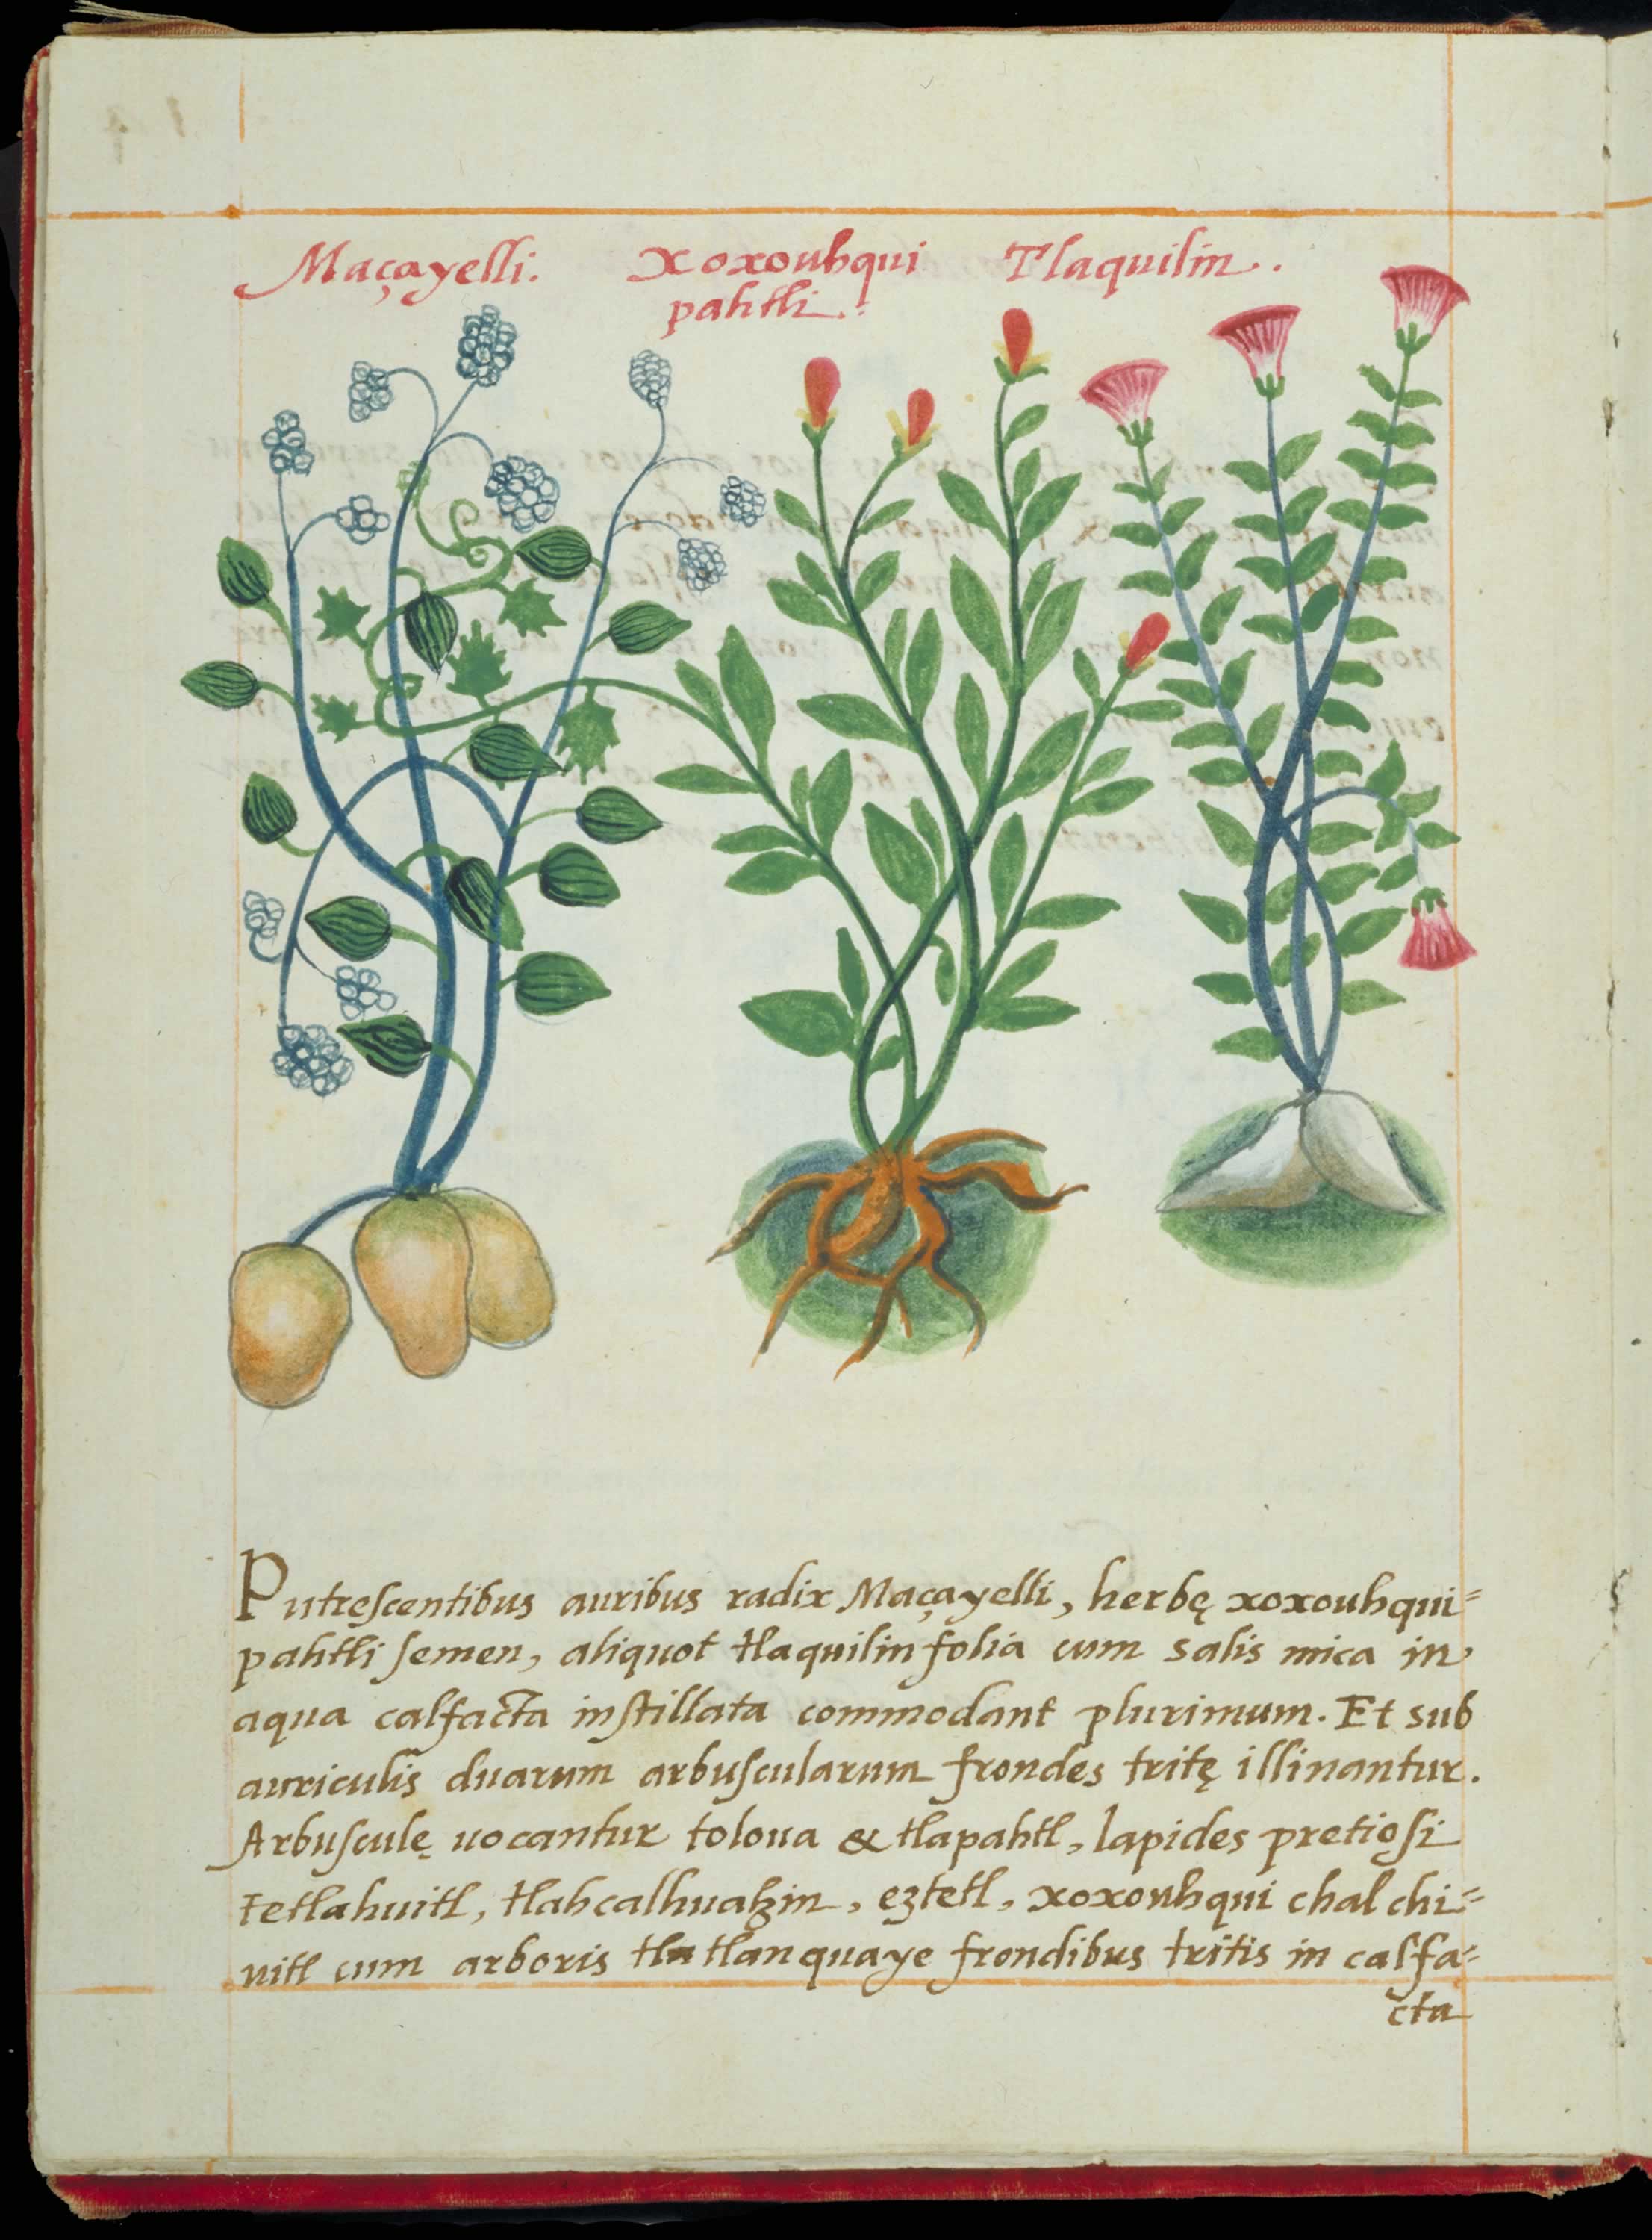 Maçayelli. Xoxouhqui Tlaquilin.
pahtli.
Putreſcentibus auribus radix Maçayelli, herbę xoxouhqui=
pahtli ſemen, aliquot tlaquilin folia cum salis mica in
aqua calfacta inſtillata commodant plurimum. Et sub
auriculis duarum arbuſcularum frondes tritę illinantur.
Arbuſculę uocantur toloua & tlapahtl, lapides pretioſi
tetlahuitl, tlahcalhuatzin, eztetl, xoxouhqui chalchi=
uitl cum arboris tlatlanquaye frondibus tritis in calfa=
cta